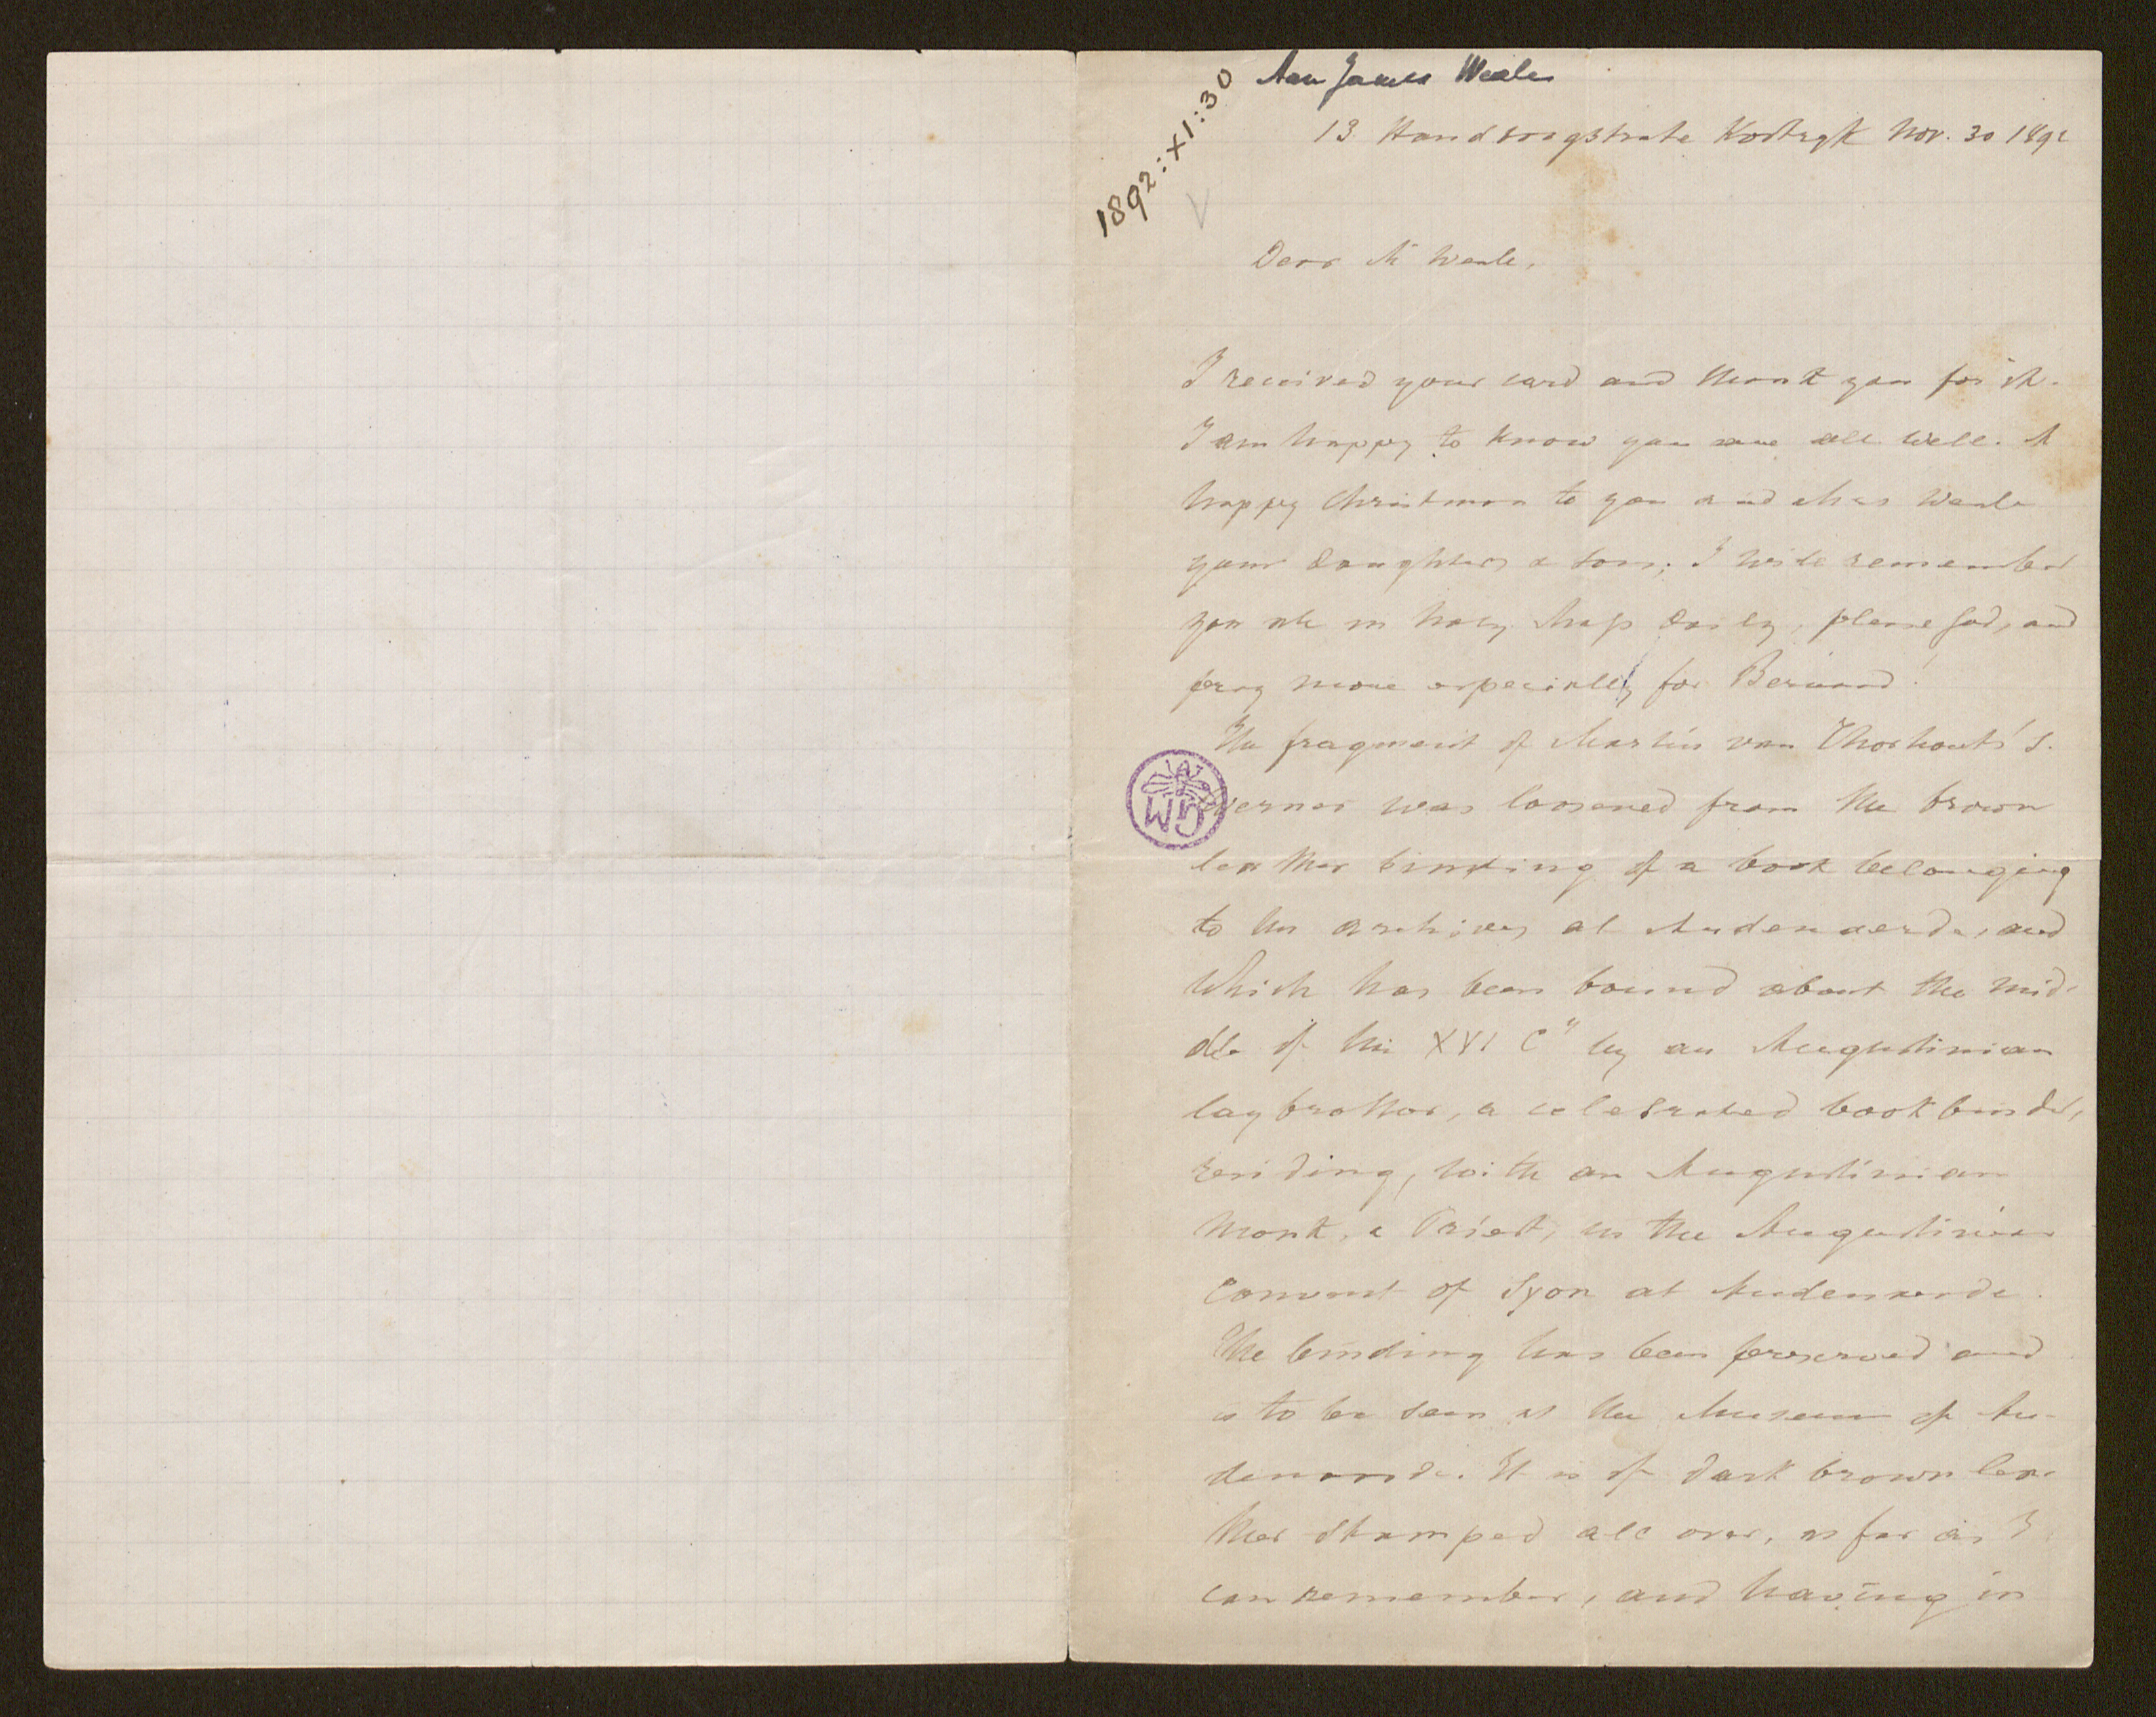 Aan James Weale
1892:XI:30
13 Handboogstrate Kortryk Nov. 30 1892
Dear Mr Weale,
I received your card and thank you for it.
I am happy to know you are all well. A
happy Christmas to you and Mrs Weale
your daughters & sons; I will remember
you all in holy Mass daily, please God, and
pray more especially for Bernard!
The fragment of Martin van Thorhout's
verner was loosened from the brown
leather binding of a book belonging
to the archives at Audenaerde, and
which has been bound about the mid-
dle of the XVI Cy by an Augustinian
lay brother, a celebrated bookbinder,
residing, with an Augustinian
monk, a Priest, in the Augustinian
Convent of Syon at Audenaerde.
The binding has been preserved and
is to be seen at the Museum of Au-
denaerde. It is of dark brown lea-
ther stamped all over, as far as I
can remember, and having in
WG